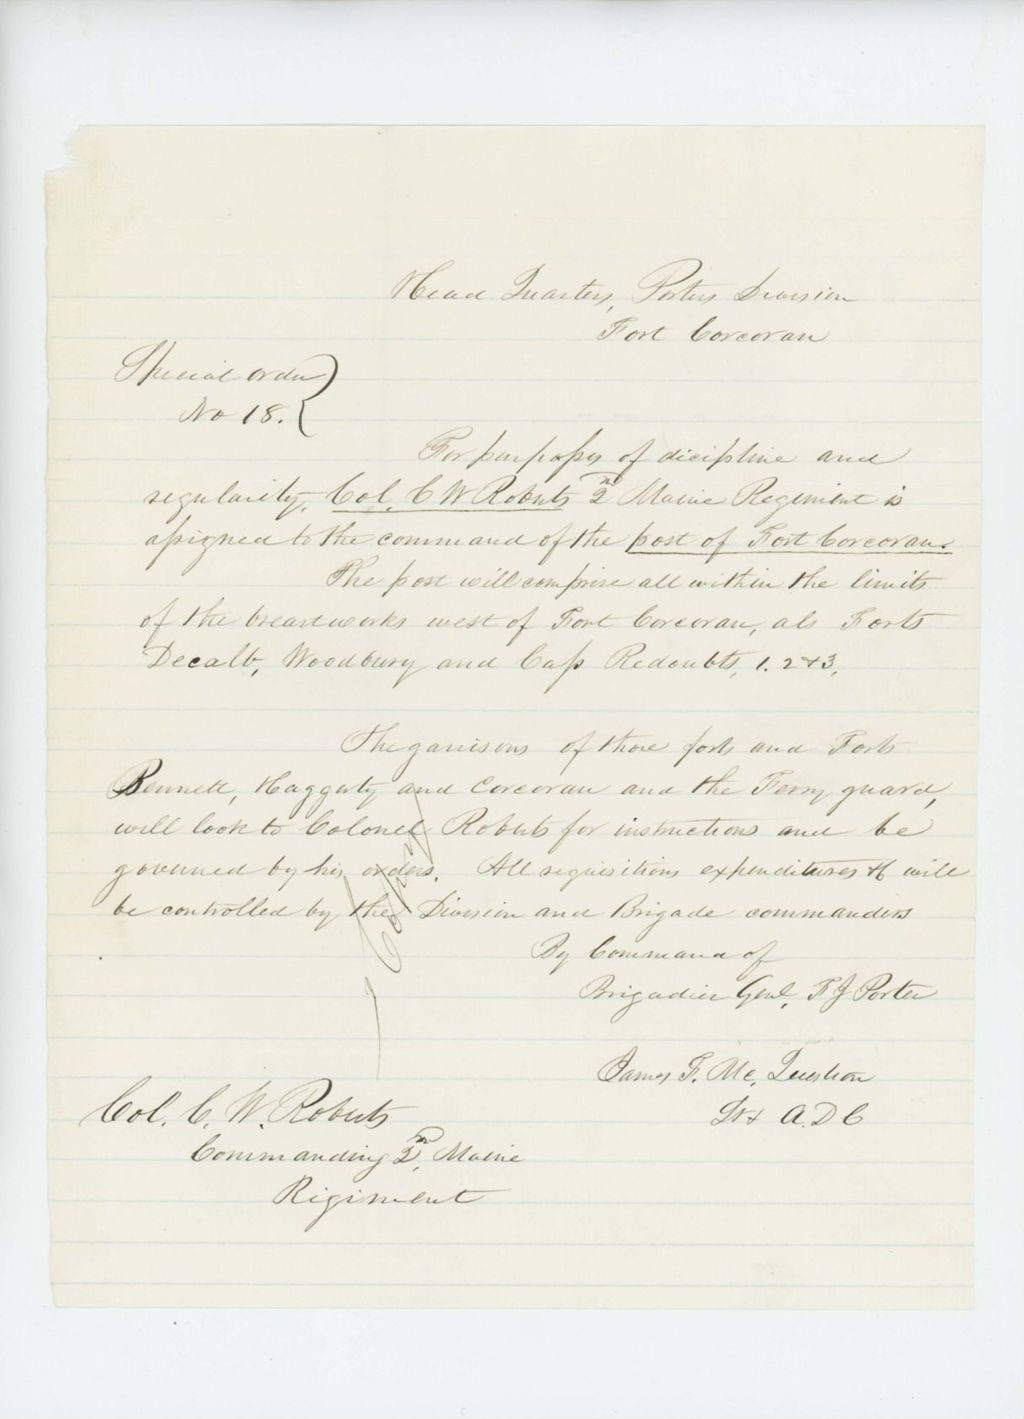 Head Quarters, Porters Division
Fort Corcoran
Special order
No 18.
For purposes of dicipline and
regularity, Col. C W Roberts 2nd Maine Regiment is
assigned to the command of the post of Fort Corcoran.
The post will comprise all within the limits
of the breastworks west of Fort Corcoran, als Forts
Decalb, Woodbury and Cass Redoubts, 1. 2 & 3.
The garrisons of those forts and Forts
Bennett, Haggerty and Corcoran and the Ferry guard,
will look to Colonel Roberts for instructions and be
governed by his orders. All requisitions expenditures &c will
be controlled by the Division and Brigade commanders
By Command of
Brigadier Genl, F J Porter
James F. Mc, Question
Lt & A. D C
Copy
Col. C. W. Roberts
Commanding 2n, Maine
Rigiment